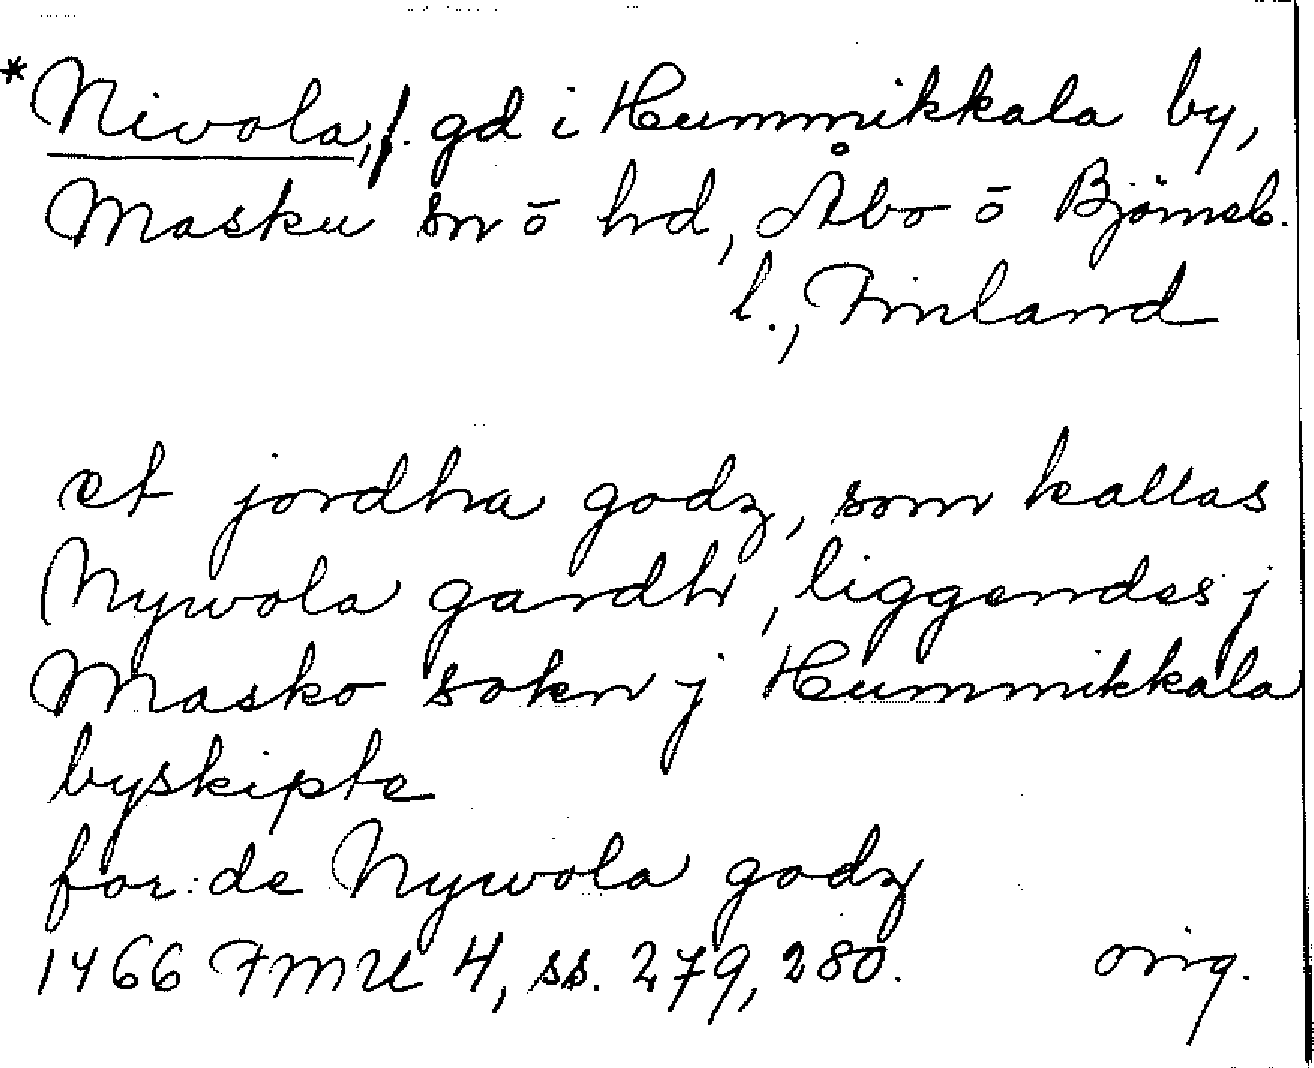 *Nivola, f. gd i Hummikkala by,
Masku sn ō hd, Åbo ō Björneb.
l., Finland
et jordha godz, som kallas
Nywola gardh, liggendes j
Masko sokn j Hummikkala
byskipte
for:de Nywola godz
1466 FMU 4, ss. 279, 280. orig.